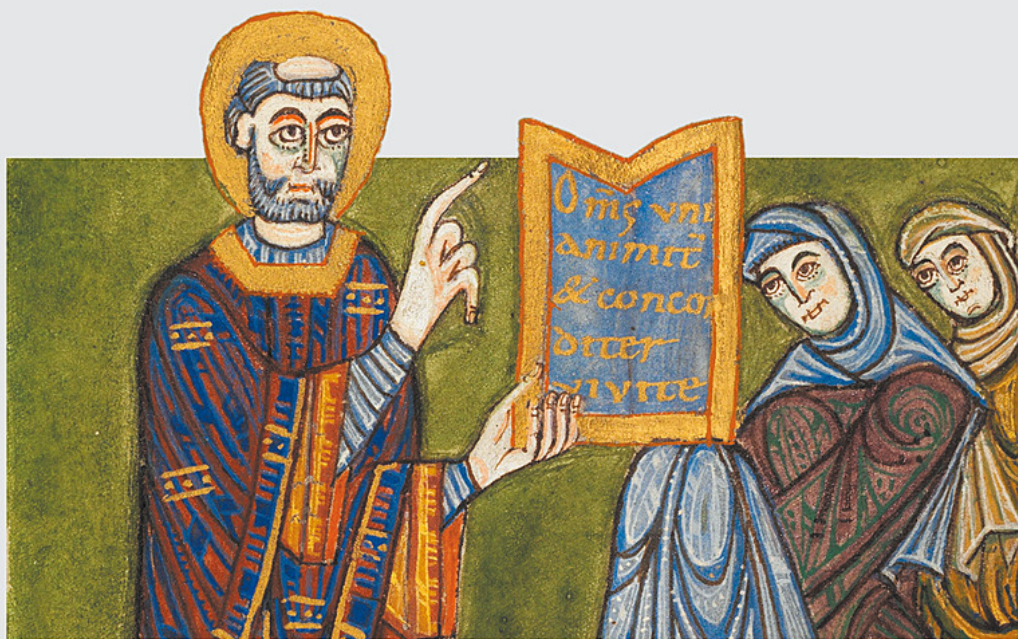 Om̄s vni
animit̄
& concor
diter
vivite